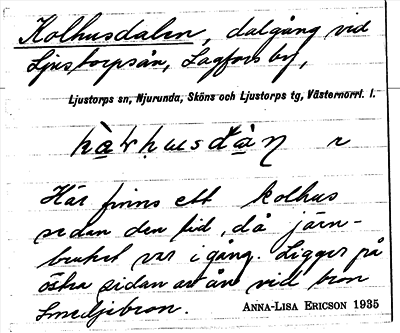 Kolhusdalen, dalgång vid
Ljustorpsån, Lagfors by,
Ljustorps sn, Njurunda, Sköns och Ljustorps tg, Västernorrl. l.
Här finns ett kolhus
sedan den tid, då järn-
bruket var i gång. Ligger på
östra sidan av ån vid bron
Smedjebron.
ANNA-LISA ERICSON 1935